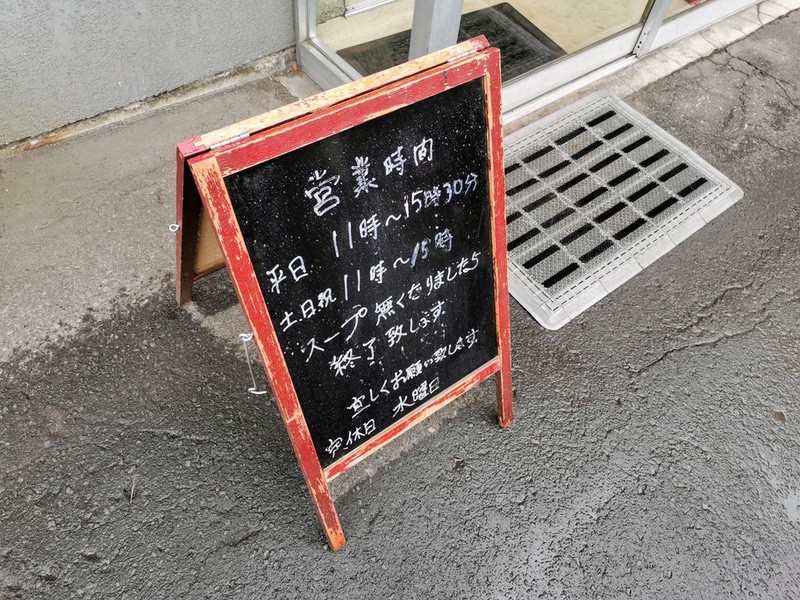 営業時間
平日 11時～15時30分
土日祝 11時～15時
スープ無くなりましたら
終了致します
宜しくお願い致します
定休日 水曜日